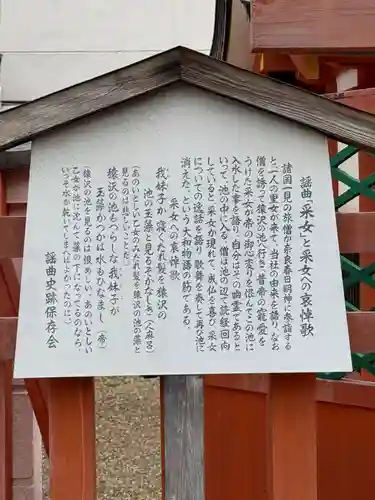 謡曲「采女」と采女への哀悼歌
諸国一見の旅僧が奈良春日明神に参詣する
と、一人の里女が来て、当社の由来を語り、なお
僧を誘って猿沢の池へ行き、昔帝の寵愛を
うけた采女が帝の御心変りを恨んでこの池に
入水した事を語り、自分はその幽霊であると
いって、池の中に入る。僧は池の辺で読経回向
していると采女が現れて、成仏を喜び、采女
についての逸話を語り歌舞を奏して再な池に
消えた、という大和物語の筋である。
采女への哀悼歌
我妹子が寝くたれ髪を猿沢の
池の玉藻と見るぞかなしき(人麻呂)
(あのいとしい乙女のみだれ髪を猿沢の池の藻と
見るのは悲しいことだ)
猿沢の池もつらしな我妹子が
玉藻かつかば水もひなまし(帝)
(猿沢の池を見るのは恨めしい。あのいとしい
乙女が池に沈んで藻の下になってるのなら、
いっそ水が乾いてしまえばよかったのに。)
謡曲史跡保存会